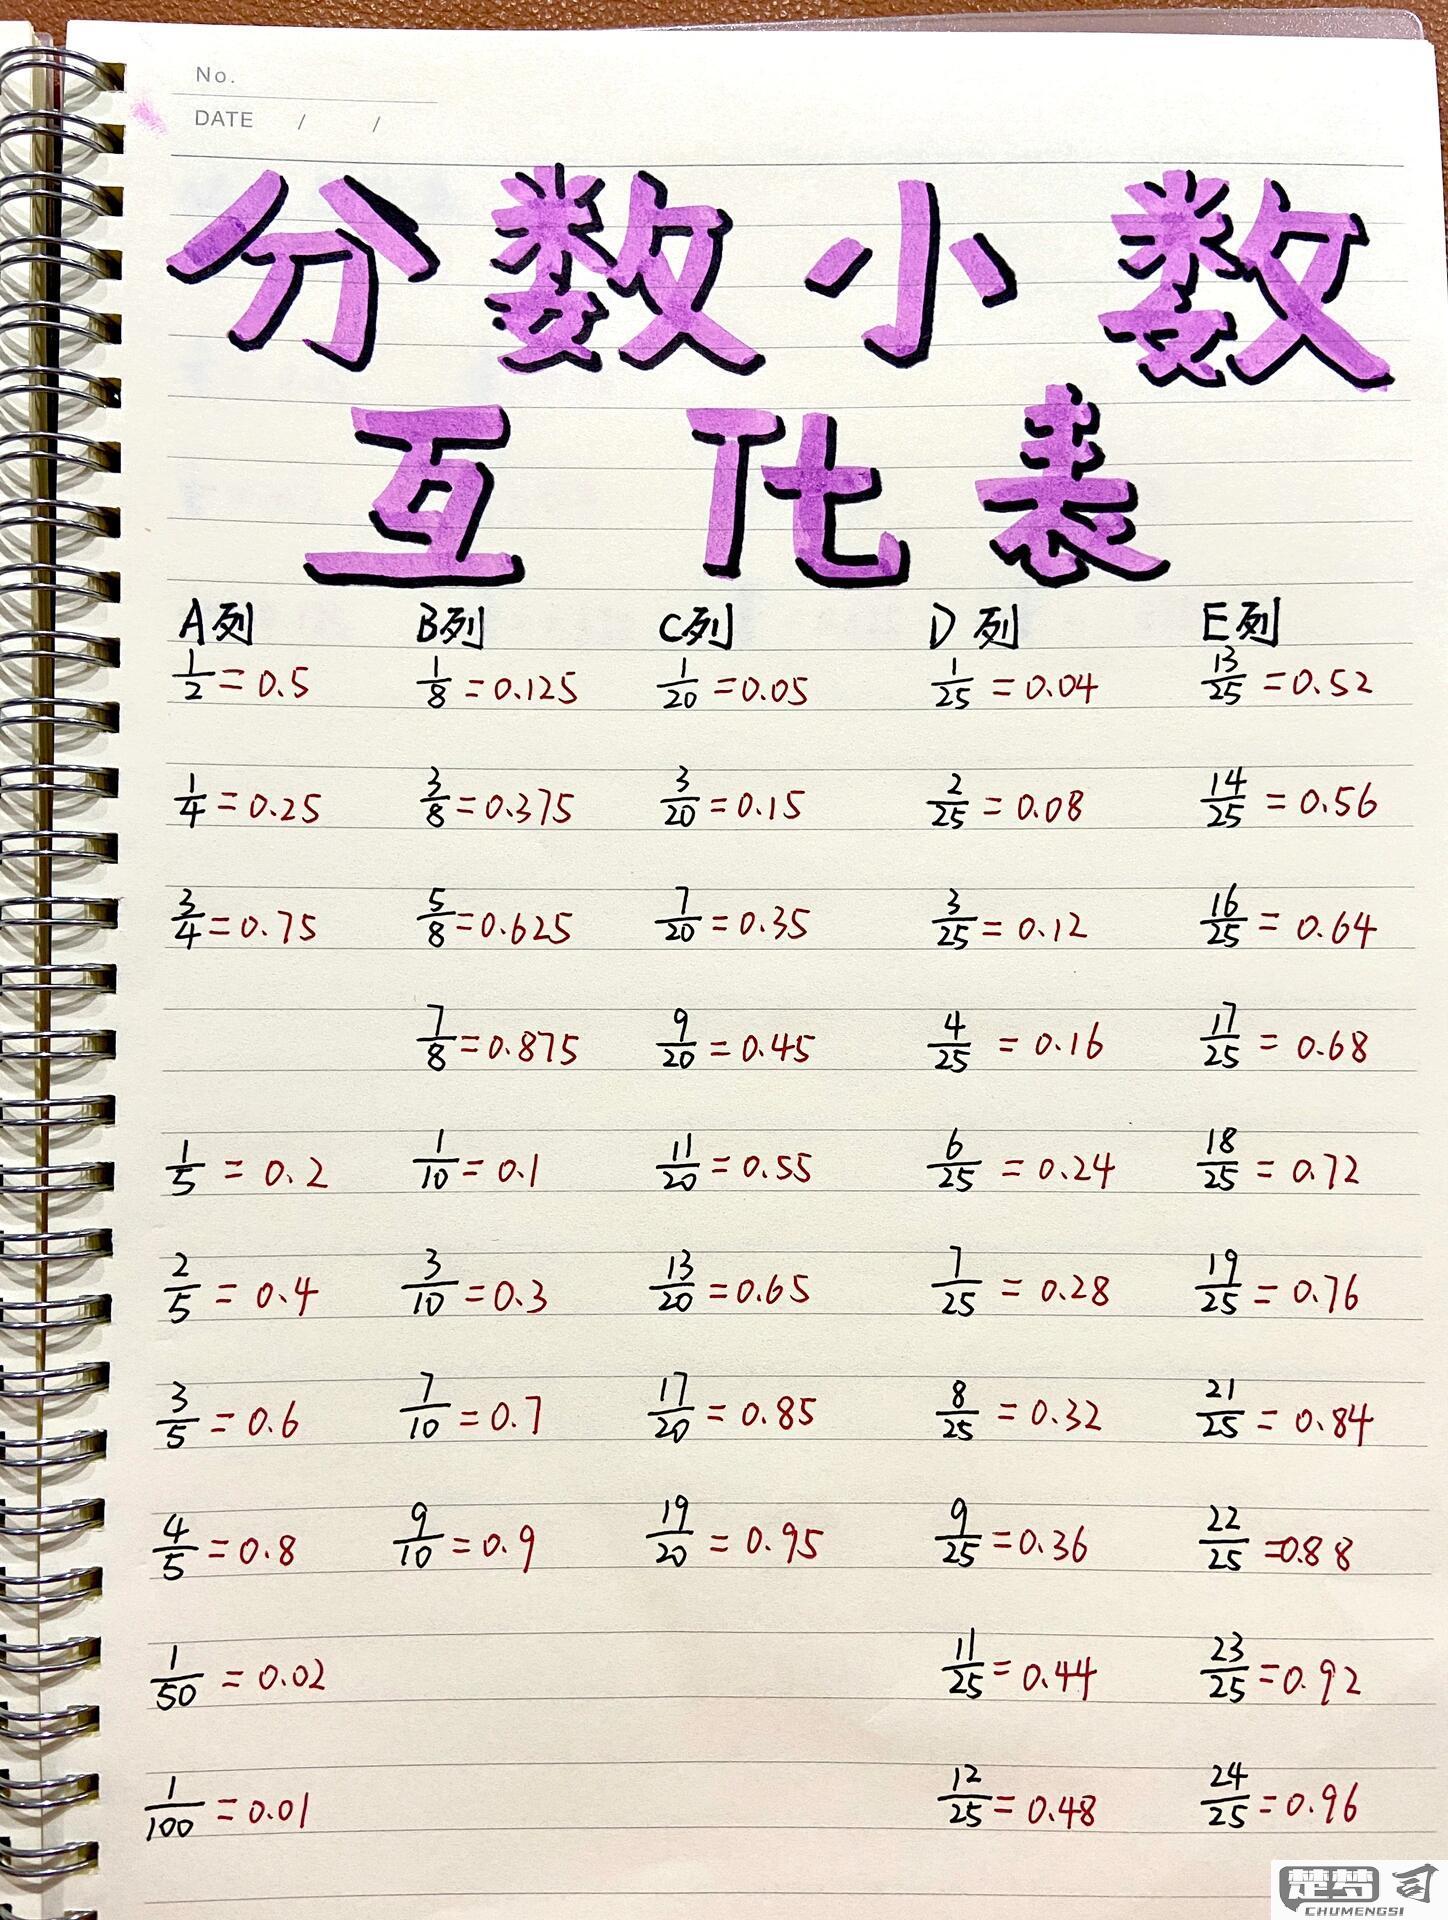 No.
DATE / /
分数小数
互化表
A列 B列 C列 D列 E列
1/2=0.5 1/8=0.125 1/20=0.05 1/25=0.04 13/25=0.52
1/4=0.25 3/8=0.375 3/20=0.15 2/25=0.08 14/25=0.56
3/4=0.75 5/8=0.625 7/20=0.35 3/25=0.12 16/25=0.64
7/8=0.875 9/20=0.45 4/25=0.16 17/25=0.68
1/5=0.2 1/10=0.1 11/20=0.55 6/25=0.24 18/25=0.72
2/5=0.4 3/10=0.3 13/20=0.65 7/25=0.28 19/25=0.76
3/5=0.6 7/10=0.7 17/20=0.85 8/25=0.32 21/25=0.84
4/5=0.8 9/10=0.9 19/20=0.95 9/25=0.36 22/25=0.88
1/50=0.02 11/25=0.44 23/25=0.92
1/100=0.01 12/25=0.48 24/25=0.96
楚梦司
CHUMENGSI